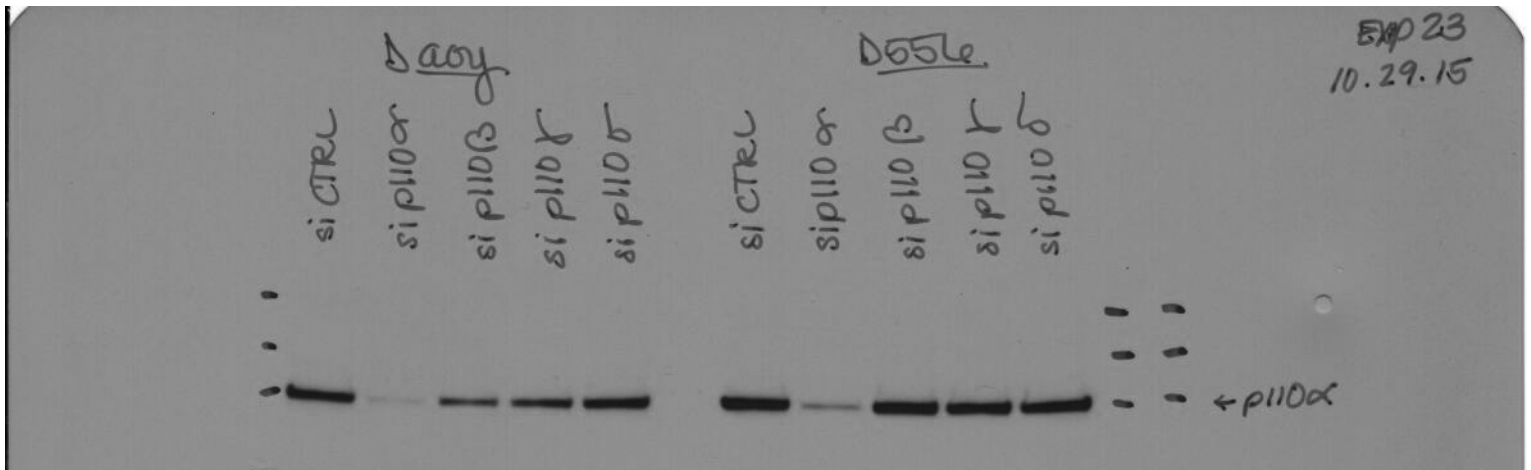 Daoy
D556
EXP 23
10.29.15
siCTRL
sip110α
sip110β
sip110γ
sip110δ
siCTRL
sip110α
sip110β
sip110γ
sip110δ
←p110α